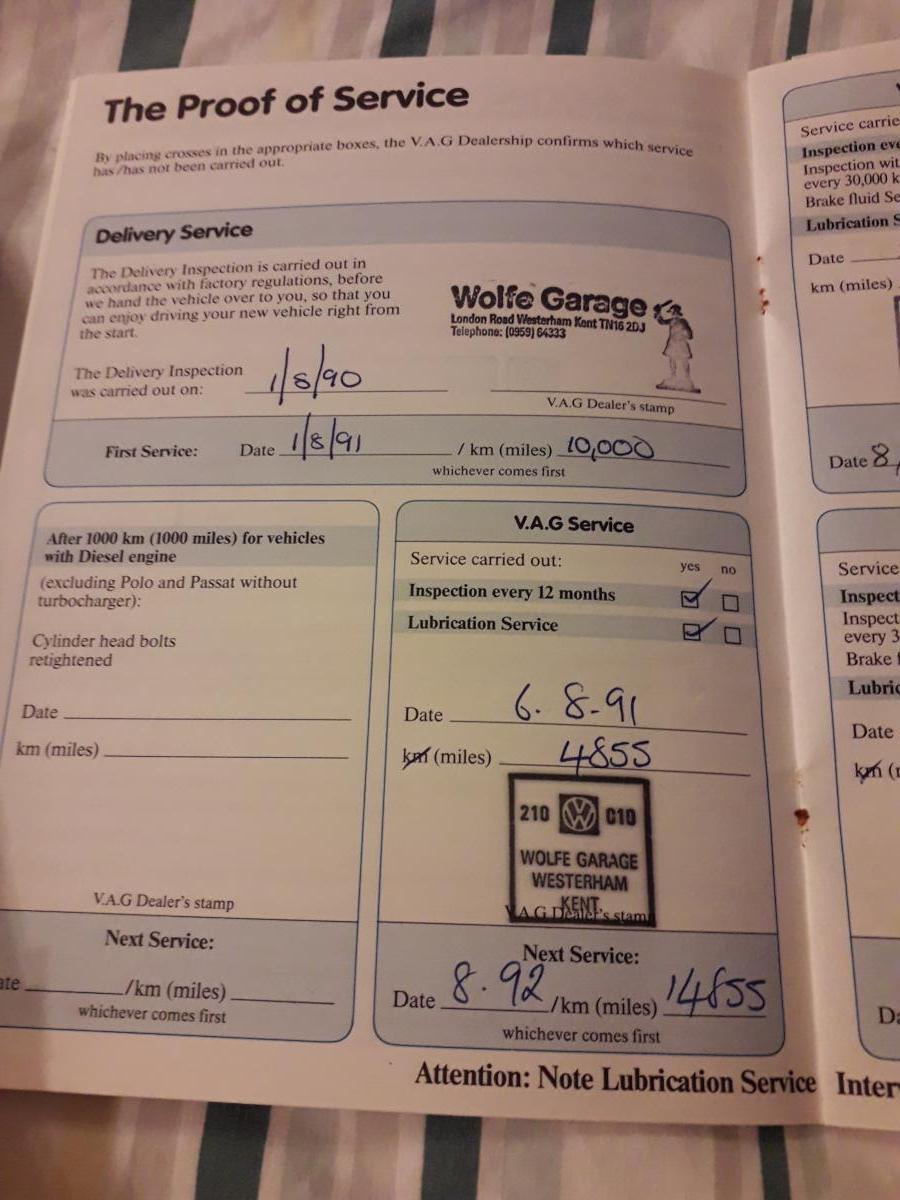 The Proof of Service
By placing crosses in the appropriate boxes, the V.A.G Dealership confirms which service
has/has not been carried out.
Delivery Service
The Delivery Inspection is carried out in
accordance with factory regulations, before
we hand the vehicle over to you, so that you
can enjoy driving your new vehicle right from
the start.
Wolfe Garage
London Road Westerham Kent TN16 2DJ
Telephone: (0959) 64333
The Delivery Inspection
was carried out on: 1/8/90
V.A.G Dealer's stamp
First Service: Date 1/8/91 / km (miles) 10,000
whichever comes first
After 1000 km (1000 miles) for vehicles
with Diesel engine
(excluding Polo and Passat without
turbocharger):
Cylinder head bolts
retightened
Date
km (miles)
V.A.G Dealer's stamp
Next Service:
/km (miles)
whichever comes first
V.A.G Service
Service carried out: yes no
Inspection every 12 months
Lubrication Service
Date 6.8-91
km (miles) 4855
210 010
WOLFE GARAGE
WESTERHAM
KENT.
V.A.G Dealer's stamp
Next Service:
Date 8.92 /km (miles) 14855
whichever comes first
Attention: Note Lubrication Service
Service
Inspection
every 30,000
Brake fluid
Lubrication
Date
km (miles)
Date 8
Service
every 3
Brake
Date
km